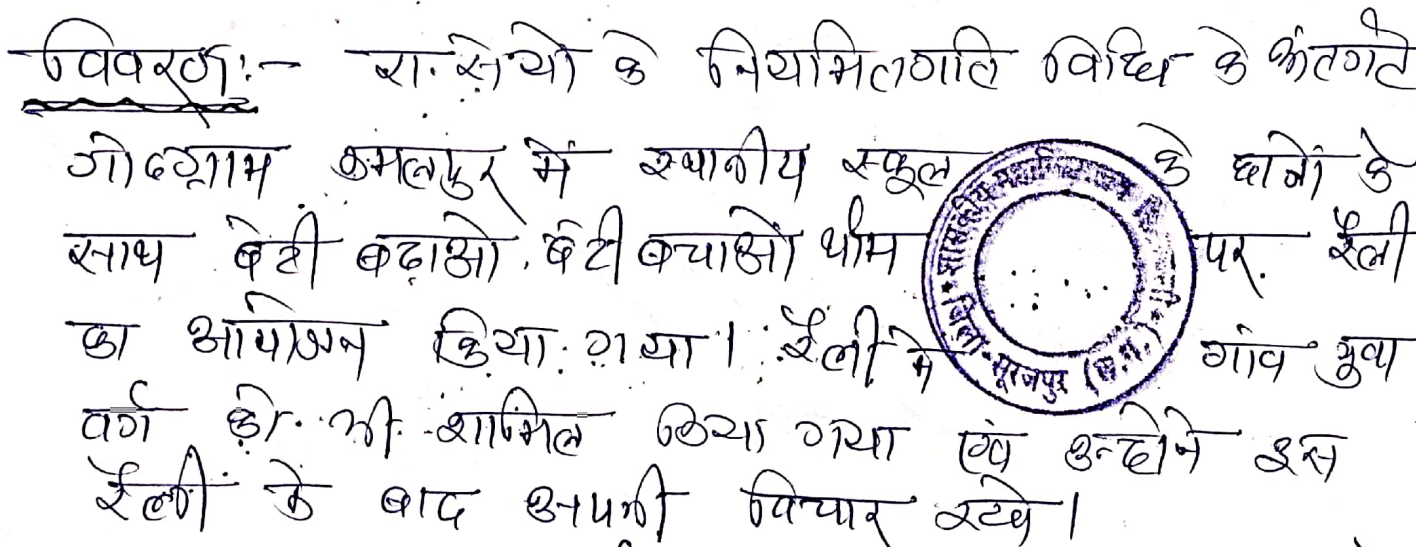 विवरण:- रा.से.यो के नियमितगति विधि के अंतगर्त
गोदग्राम कमलपुर में स्थानीय स्कूल के छात्रों के
साथ बेटी बढाओ, बेटी बचाओ थीम पर रैली
का आयोजन किया गया। रैली में गांव युवा
वर्ग को भी शामिल किया गया एवं उन्होने इस
रैली के बाद अपनी विचार रखे।
शासकीय महाविद्यालय
जिला-सूरजपुर (छ.ग.)